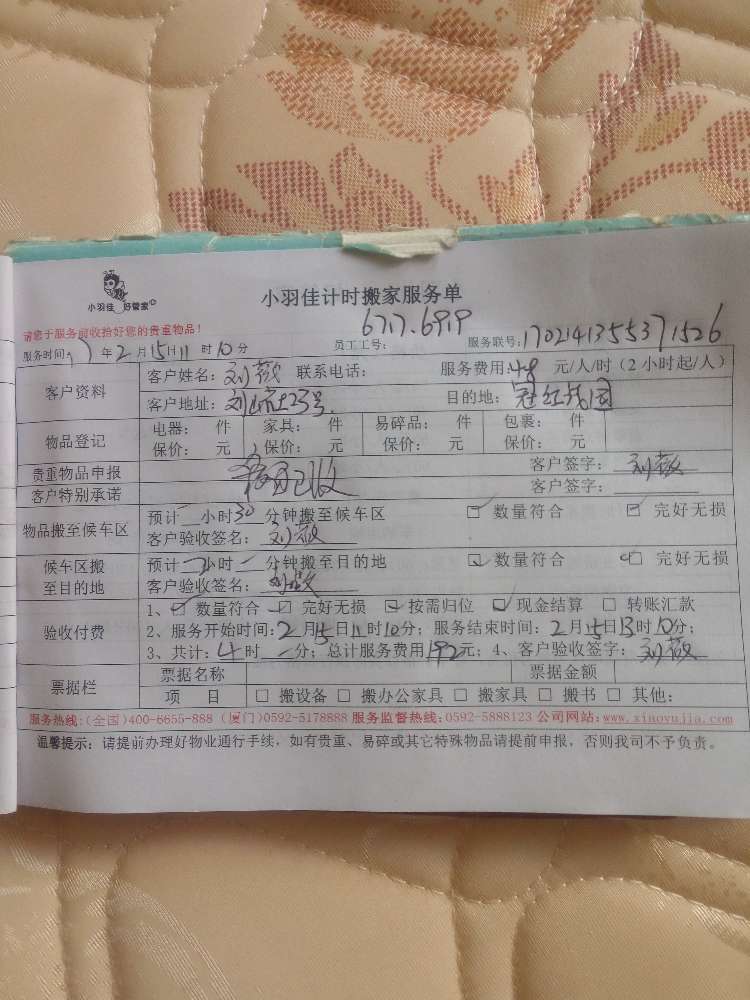 小羽佳 好管家
小羽佳计时搬家服务单
请您于服务前收拾好您的贵重物品!
员工工号: 6717.6919 服务联号:1702141355371526
服务时间:17年2月15日11时10分
客户资料 客户姓名:刘薇 联系电话: 服务费用:48元/人/时(2小时起/人)
客户地址: 23号 目的地:
物品登记 电器: 件 家具: 件 易碎品: 件 包裹: 件
保价: 元 保价: 元 保价: 元 保价: 元
贵重物品申报 客户签字:刘薇
客户特别承诺 客户签字:
物品搬至候车区 预计 小时30分钟搬至候车区 ☑ 数量符合 ☑ 完好无损
客户验收签名:刘薇
候车区搬至目的地 预计 小时 分钟搬至目的地 ☑ 数量符合 ☑ 完好无损
客户验收签名:刘薇
验收付费 1、☑ 数量符合 ☑ 完好无损 ☑ 按需归位 ☑ 现金结算 □ 转账汇款
2、服务开始时间:2月15日11时10分;服务结束时间:2月15日13时10分;
3、共计:4时 分;总计服务费用192元;4、客户验收签字:刘薇
票据栏 票据名称 票据金额
项 目 □ 搬设备 □ 搬办公家具 □ 搬家具 □ 搬书 □ 其他:
服务热线:(全国)400-6655-888 (厦门)0592-5178888 服务监督热线:0592-5888123 公司网站:www.xiaoyujia.com
温馨提示:请提前办理好物业通行手续,如有贵重、易碎或其它特殊物品请提前申报,否则我司不予负责。